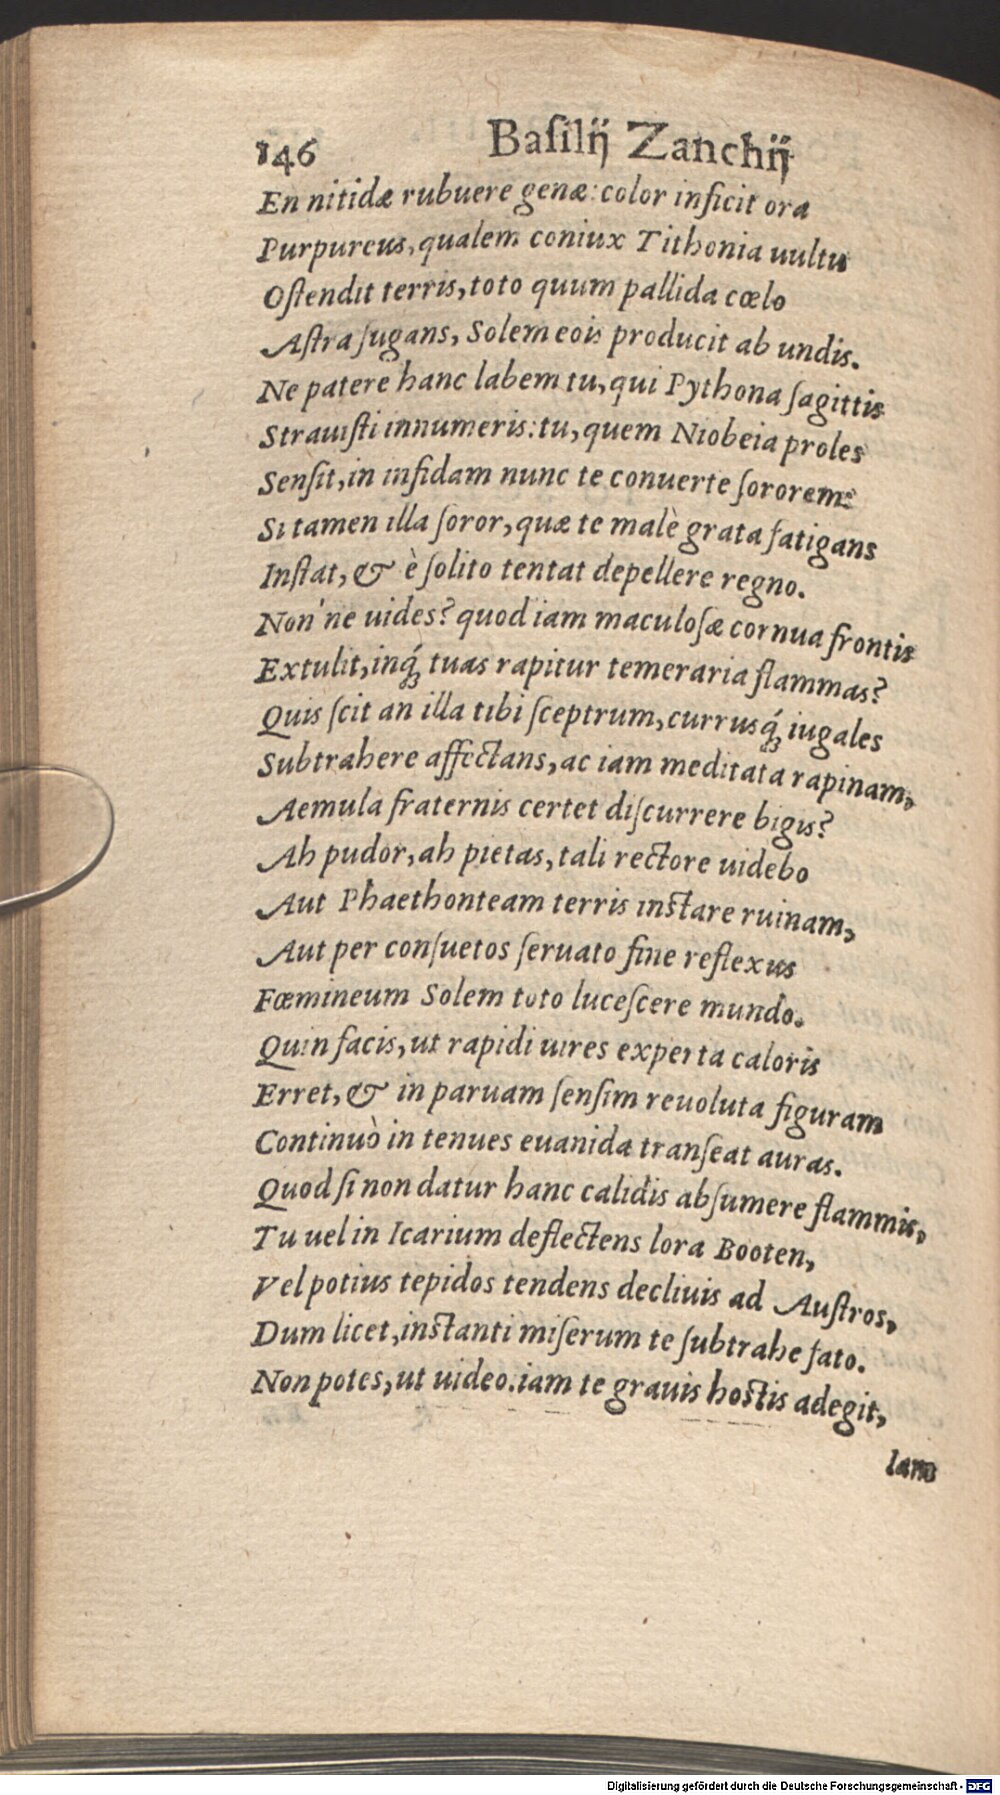 146 Baſilĳ Zanchĳ
En nitidæ rubuere genæ: color inficit ora
Purpureus, qualem coniux Tithonia uultu
Oſtendit terris, toto quum pallida cœlo
Aſtra fugans, Solem eois producit ab undis.
Ne patere hanc labem tu, qui Pythona ſagittis
Strauiſti innumeris: tu, quem Niobeia proles
Senſit, in infidam nunc te conuerte ſororem:
Si tamen illa ſoror, quæ te malè grata fatigans
Inſtat, & è ſolito tentat depellere regno.
Non'ne uides? quod iam maculoſæ cornua frontis
Extulit, inq́; tuas rapitur temeraria flammas?
Quis ſcit an illa tibi ſceptrum, currusq́; iugales
Subtrahere affectans, ac iam meditata rapinam,
Aemula fraternis certet diſcurrere bigis?
Ah pudor, ah pietas, tali rectore uidebo
Aut Phaethonteam terris inſtare ruinam,
Aut per conſuetos ſeruato fine reflexus
Fœmineum Solem toto luceſcere mundo.
Quin facis, ut rapidi uires experta caloris
Erret, & in paruam ſenſim reuoluta figuram
Continuò in tenues euanida tranſeat auras.
Quod ſi non datur hanc calidis abſumere flammis,
Tu uel in Icarium deflectens lora Booten,
Vel potius tepidos tendens decliuis ad Auſtros,
Dum licet, inſtanti miſerum te ſubtrahe fato.
Non potes, ut uideo. iam te grauis hoſtis adegit,
Iam
Digitalisierung gefördert durch die Deutsche Forschungsgemeinschaft - DFG